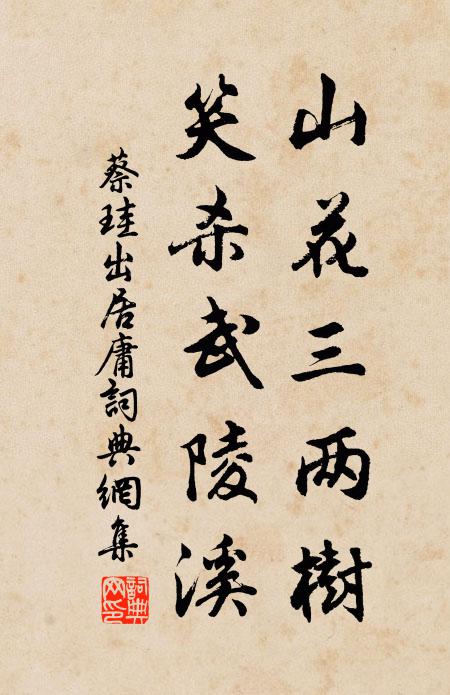 山花三两樹
笑杀武陵溪
蔡珪出居庸詞典網集
詞典网印